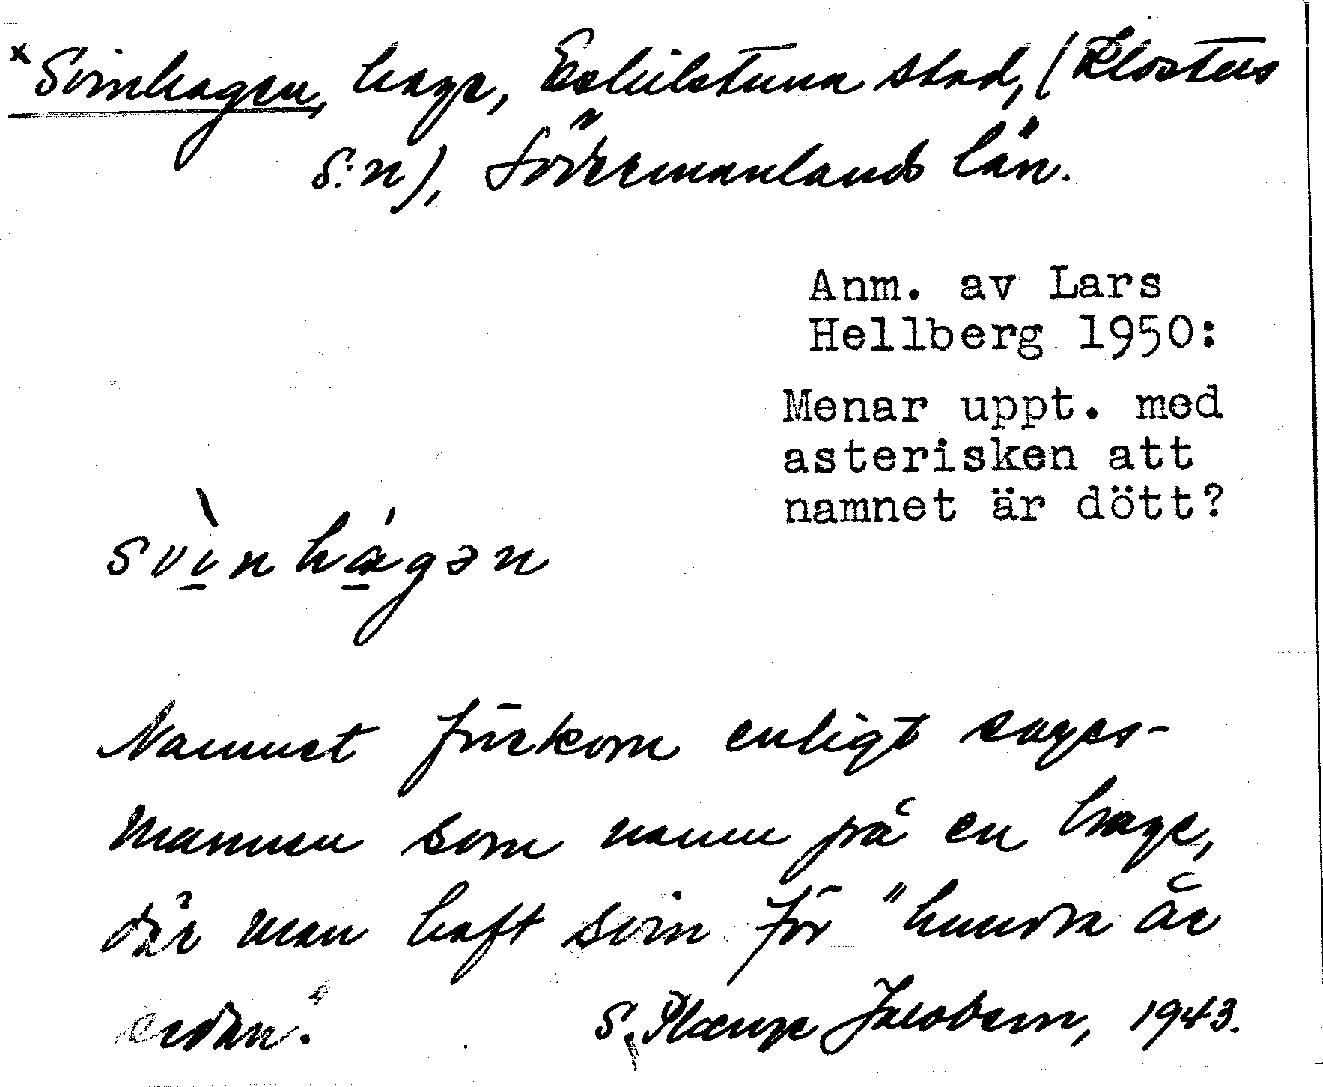 *Svinhagen, hage, Eskilstuna stad, (Klosters
s:n), Södermanlands län.
Anm. av Lars
Hellberg 1950:
Menar uppt. med
asterisken att
namnet är dött?
svìnhágən
Namnet förekom enligt sages-
mannen som namn på en hage,
där man haft svin för "hundra år
sedan."
S. Jacobsen, 1943.